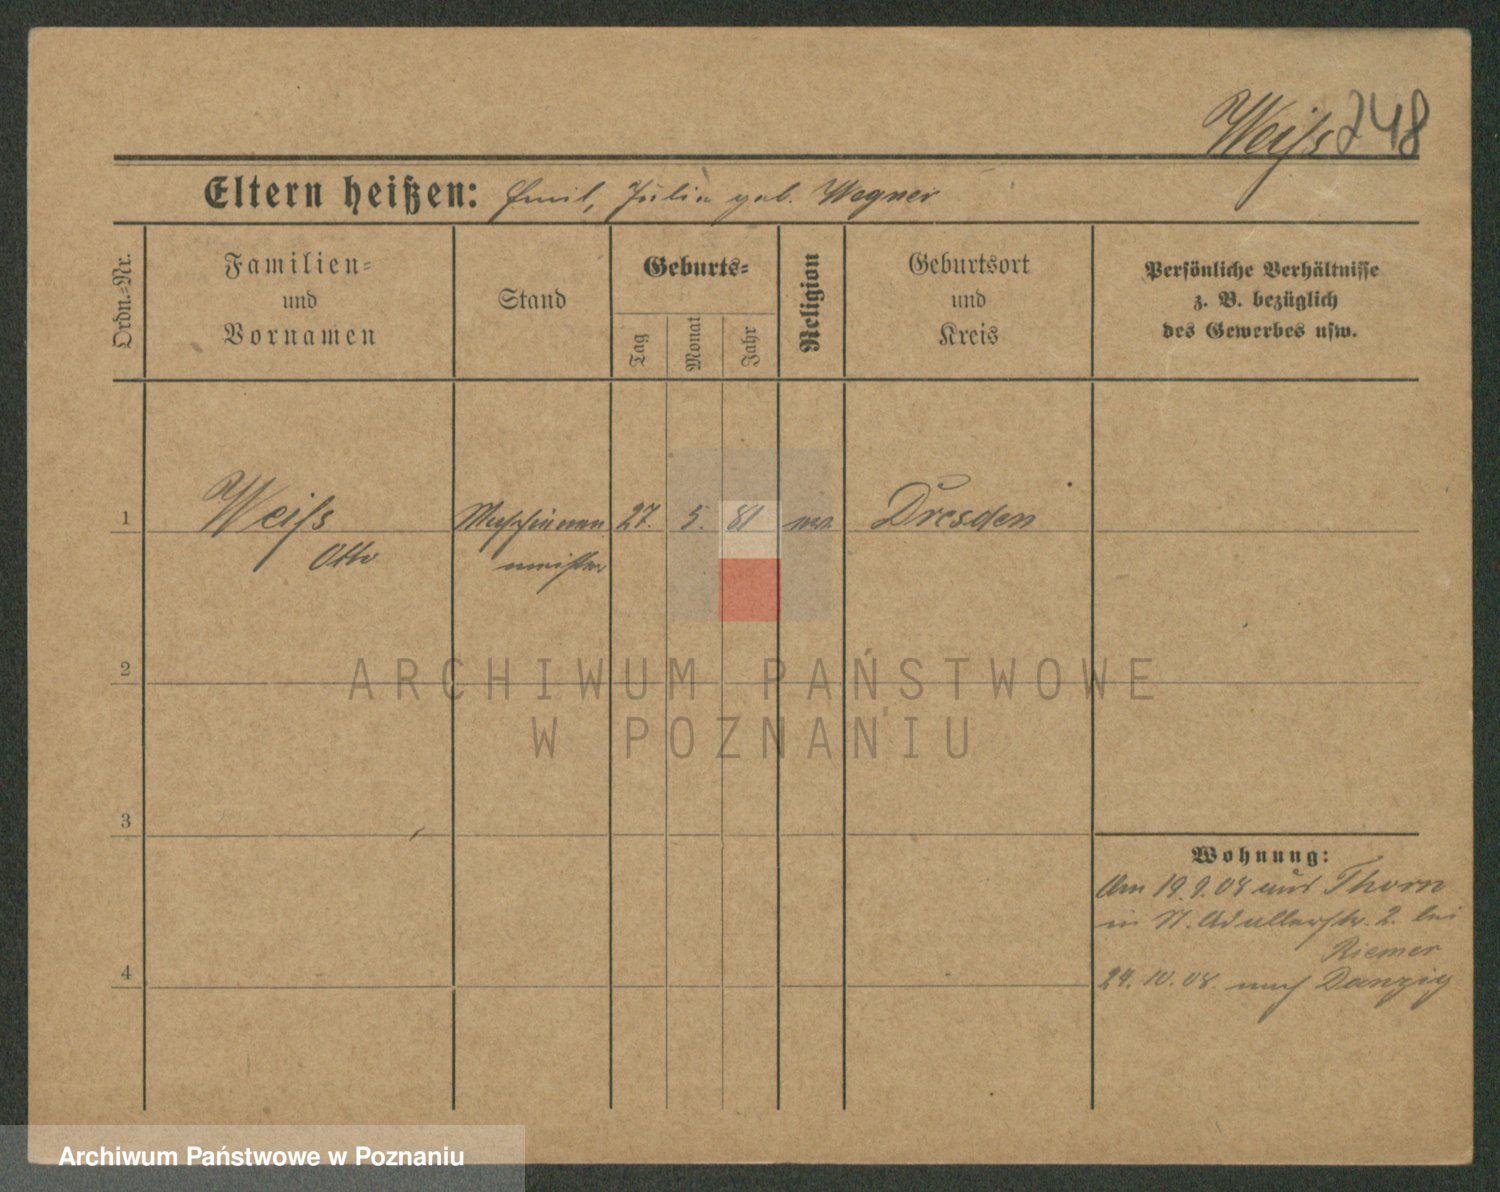 Weiß 248
Eltern heißen: Emil, Julie geb. Wegner
Ordn.-Nr.
Familien-
und
Vornamen
Stand
Geburts-
Tag
Monat
Jahr
Religion
Geburtsort
und
Kreis
Persönliche Verhältnisse
z. B. bezüglich
des Gewerbes usw.
1 Weiß Maschinen 27. 5. 81 Dresden
Otto meister
2
ARCHIWUM PAŃSTWOWE
W POZNANIU
3
Wohnung:
Am 19.9.08 aus Thorn
in St. Adalbertstr. 2. bei
Riemer
4
24.10.08. nach Danzig
Archiwum Państwowe w Poznaniu